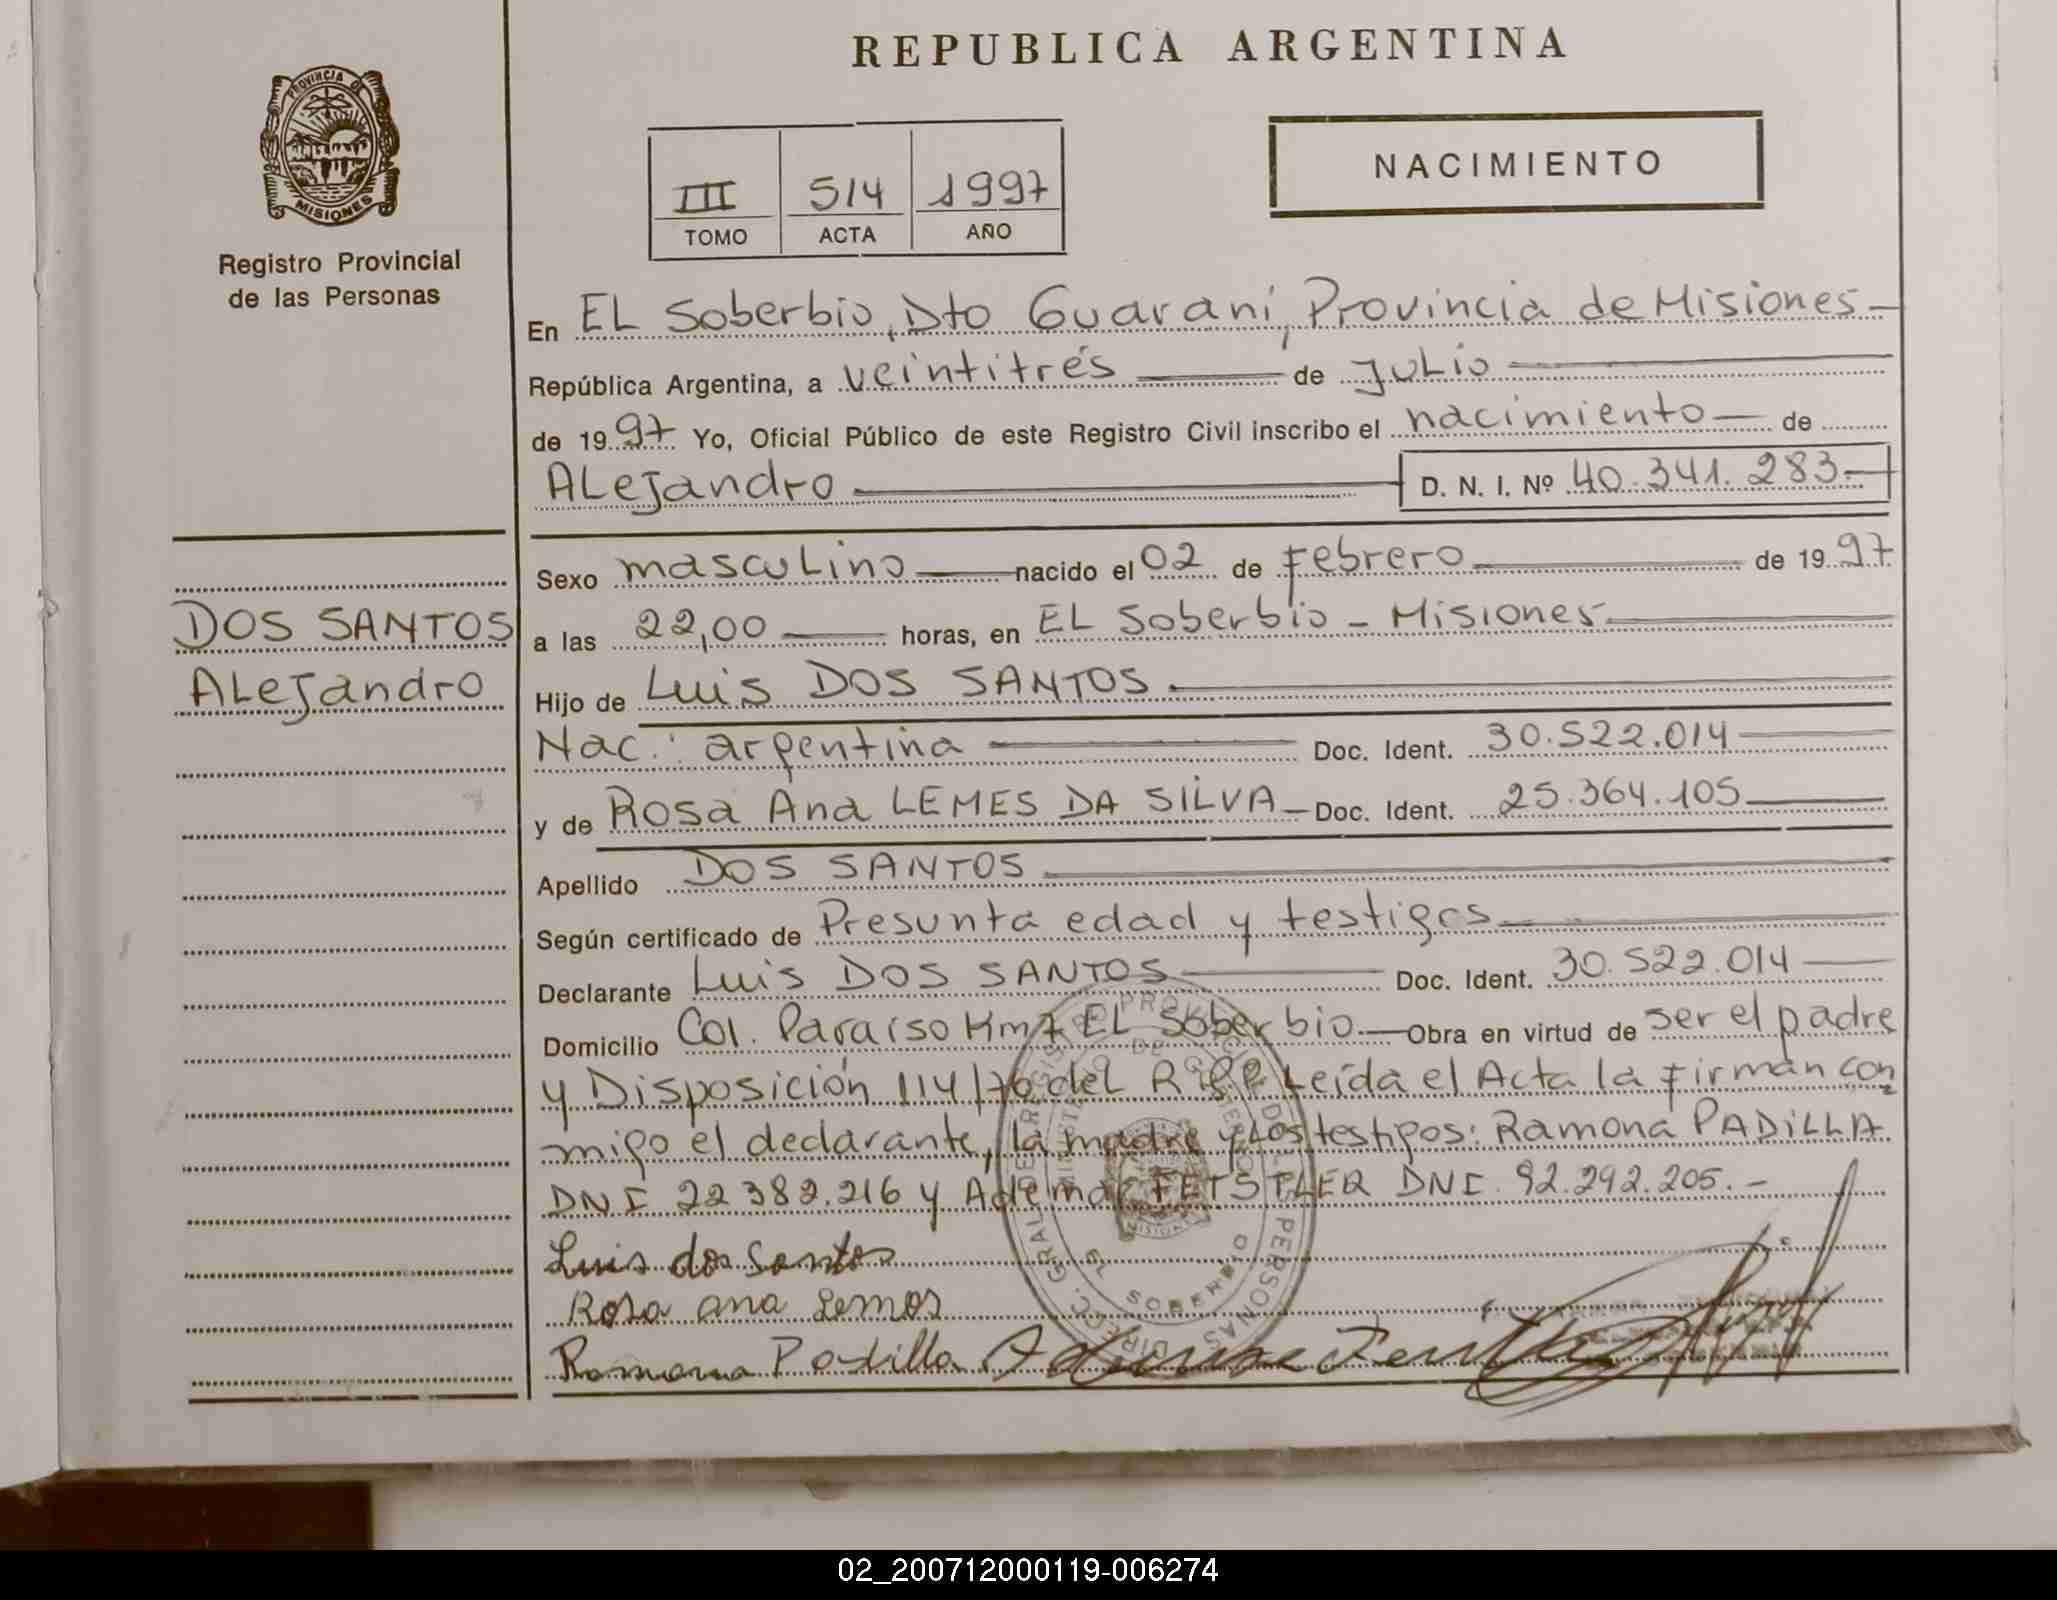 REPUBLICA ARGENTINA
PROVINCIA DE
MISIONES
Registro Provincial
de las Personas
III 514 1997
TOMO ACTA AÑO
NACIMIENTO
En EL Soberbio, Dto Guaraní, Provincia de Misiones
República Argentina, a veintitrés de JuLio
de 1997 Yo, Oficial Público de este Registro Civil inscribo el nacimiento de
ALejandro D. N. I. Nº 40.341.283.-
Sexo mascuLino nacido el 02 de Febrero de 1997
DOS SANTOS
ALejandro
a las 22,00 horas, en EL Soberbio - Misiones
Hijo de Luis DOS SANTOS
Nac.: argentina Doc. Ident. 30.522.014
y de Rosa Ana LEMES DA SILVA Doc. Ident. 25.364.105
Apellido DOS SANTOS
Según certificado de Presunta edad y testigos
Declarante Luis DOS SANTOS Doc. Ident. 30.522.014
Domicilio Col. Paraíso Km 7 EL Soberbio Obra en virtud de ser el padre
y Disposición 114/70 del Leída el Acta la Firman con
migo el declarante, la madre y Los testigos: Ramona PADILLA
DNI 22 382.216 y Ademar FETSTLER DNI. 92.292.205.-
Luis dos Santos
Rosa ana Lemos
Ramona Padilla
SOBERBIO
02_200712000119-006274